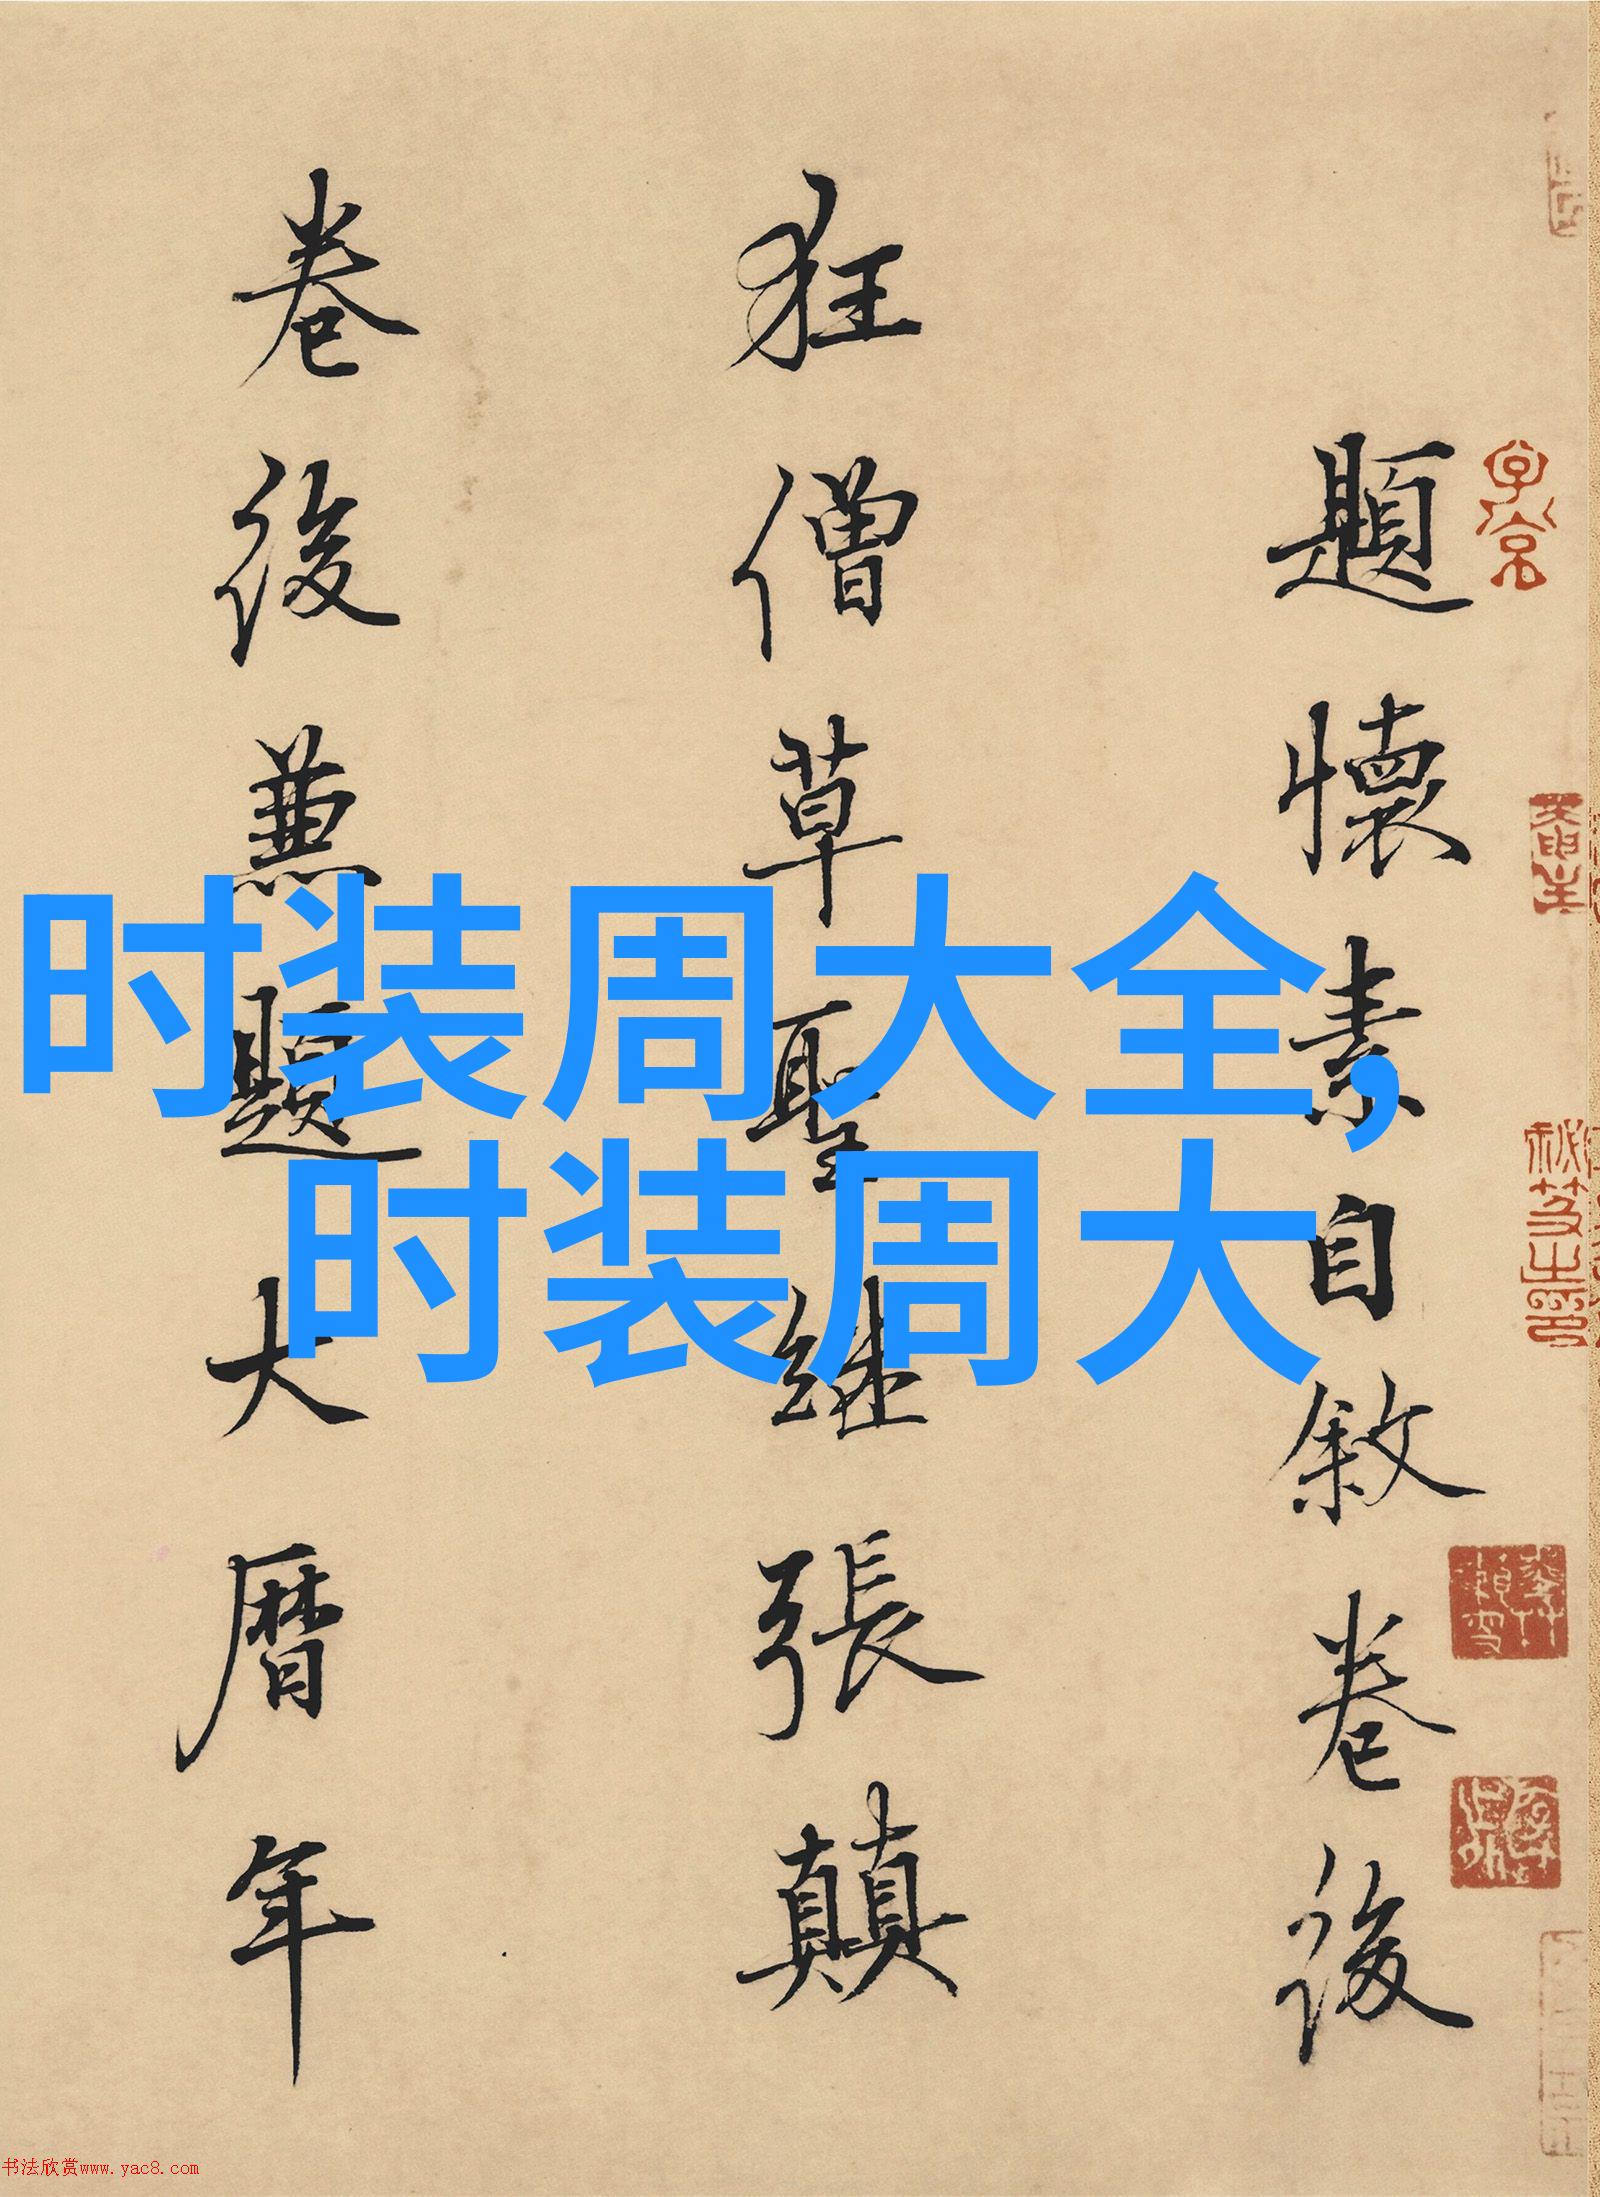 題懷素自敘卷後
狂僧草聖继張顛
卷後兼題大曆年
时装周大全,
时装周大
书法欣赏www.yac8.com